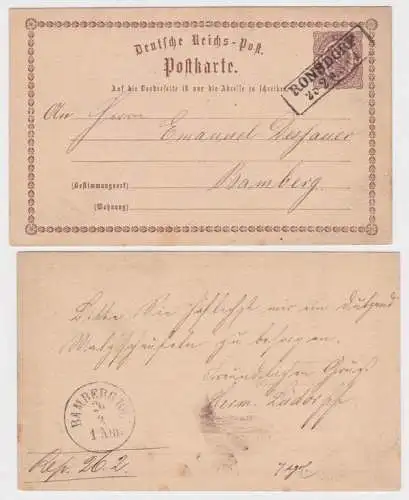 Deutsche Reichs-Post.
Postkarte.
Auf die Vorderseite ist nur die Adresse zu schreiben
RONSDORF
25 2
An Herrn Emanuel Dessauer
Bamberg
(Bestimmungsort)
(Wohnung)
Bitte Sie höflichst mir ein Dutzend
Malzschaufeln zu besorgen.
Freundlichen Gruß
BAMBERG
26
2
1 Nm.
Rep. 26.2.